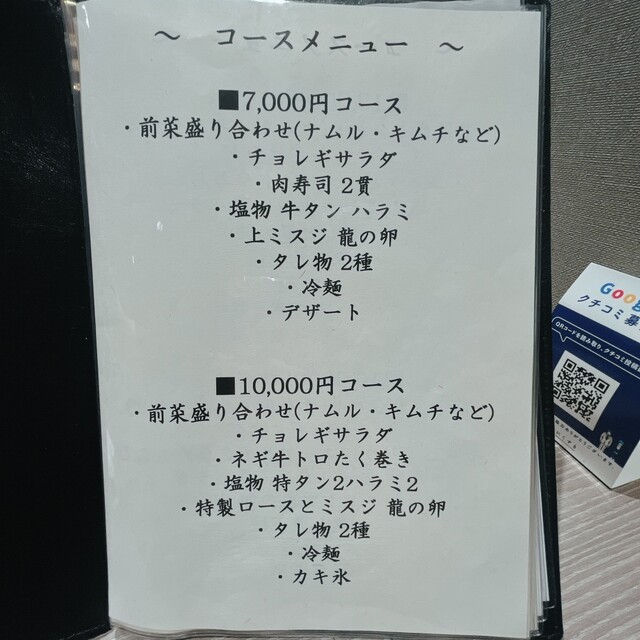 ～ コースメニュー ～
■7,000円コース
・前菜盛り合わせ(ナムル・キムチなど)
・チョレギサラダ
・肉寿司 2貫
・塩物 牛タン ハラミ
・上ミスジ 龍の卵
・タレ物 2種
・冷麺
・デザート
■10,000円コース
・前菜盛り合わせ(ナムル・キムチなど)
・チョレギサラダ
・ネギ牛トロたく巻き
・塩物 特タン2ハラミ2
・特製ロースとミスジ 龍の卵
・タレ物 2種
・冷麺
・カキ氷
クチコミ募
QRコードを読み取り、クチコミ投稿